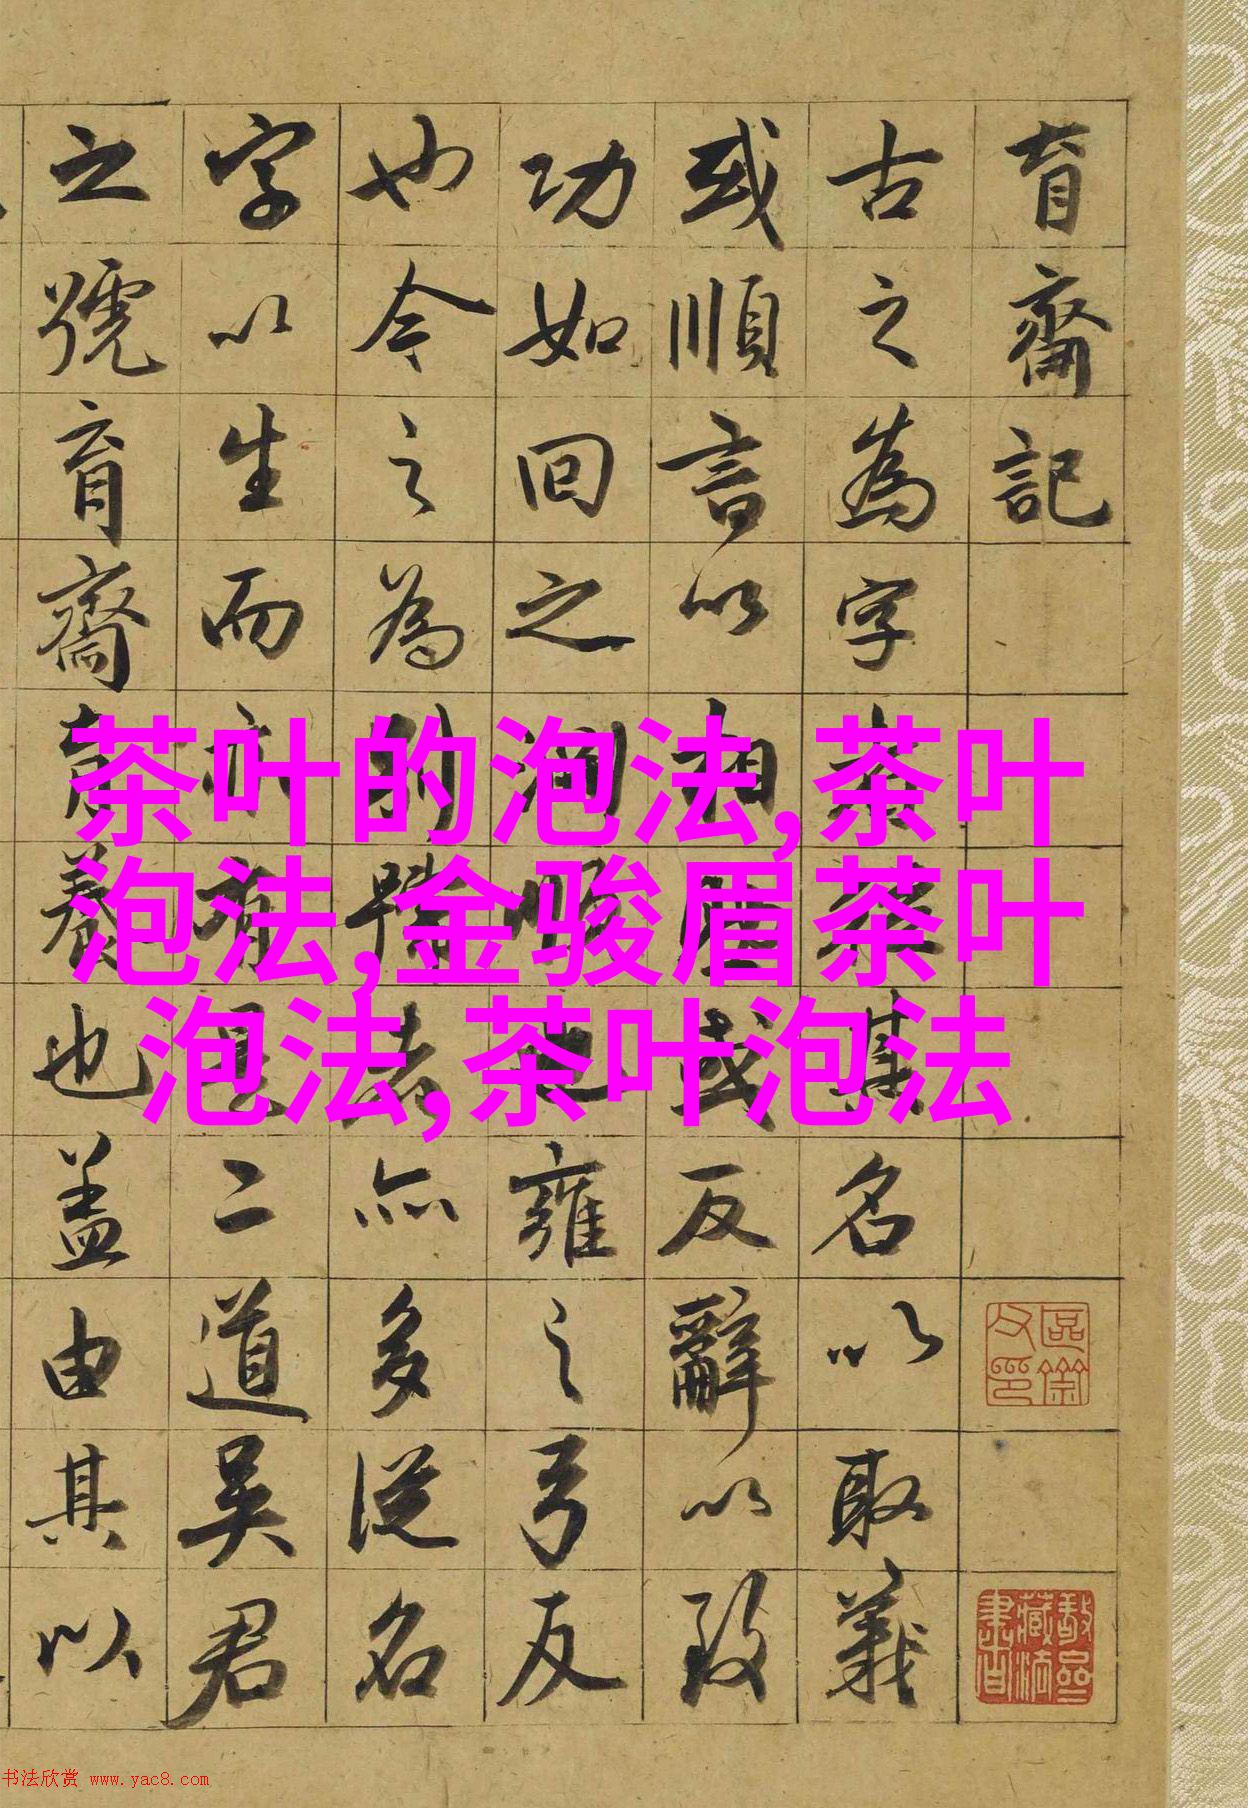 育齋記
古之為字其名以取義
或順言以相或反辭以致
功如回之淵順也雍之弓反
也今之為別號者亦多從名
字以生而亦有二道吳君
之號育齋育養也蓋由其以
茶叶的泡法,茶叶
泡法,金骏眉茶叶
泡法,茶叶泡法
书法欣赏 www.yac8.com